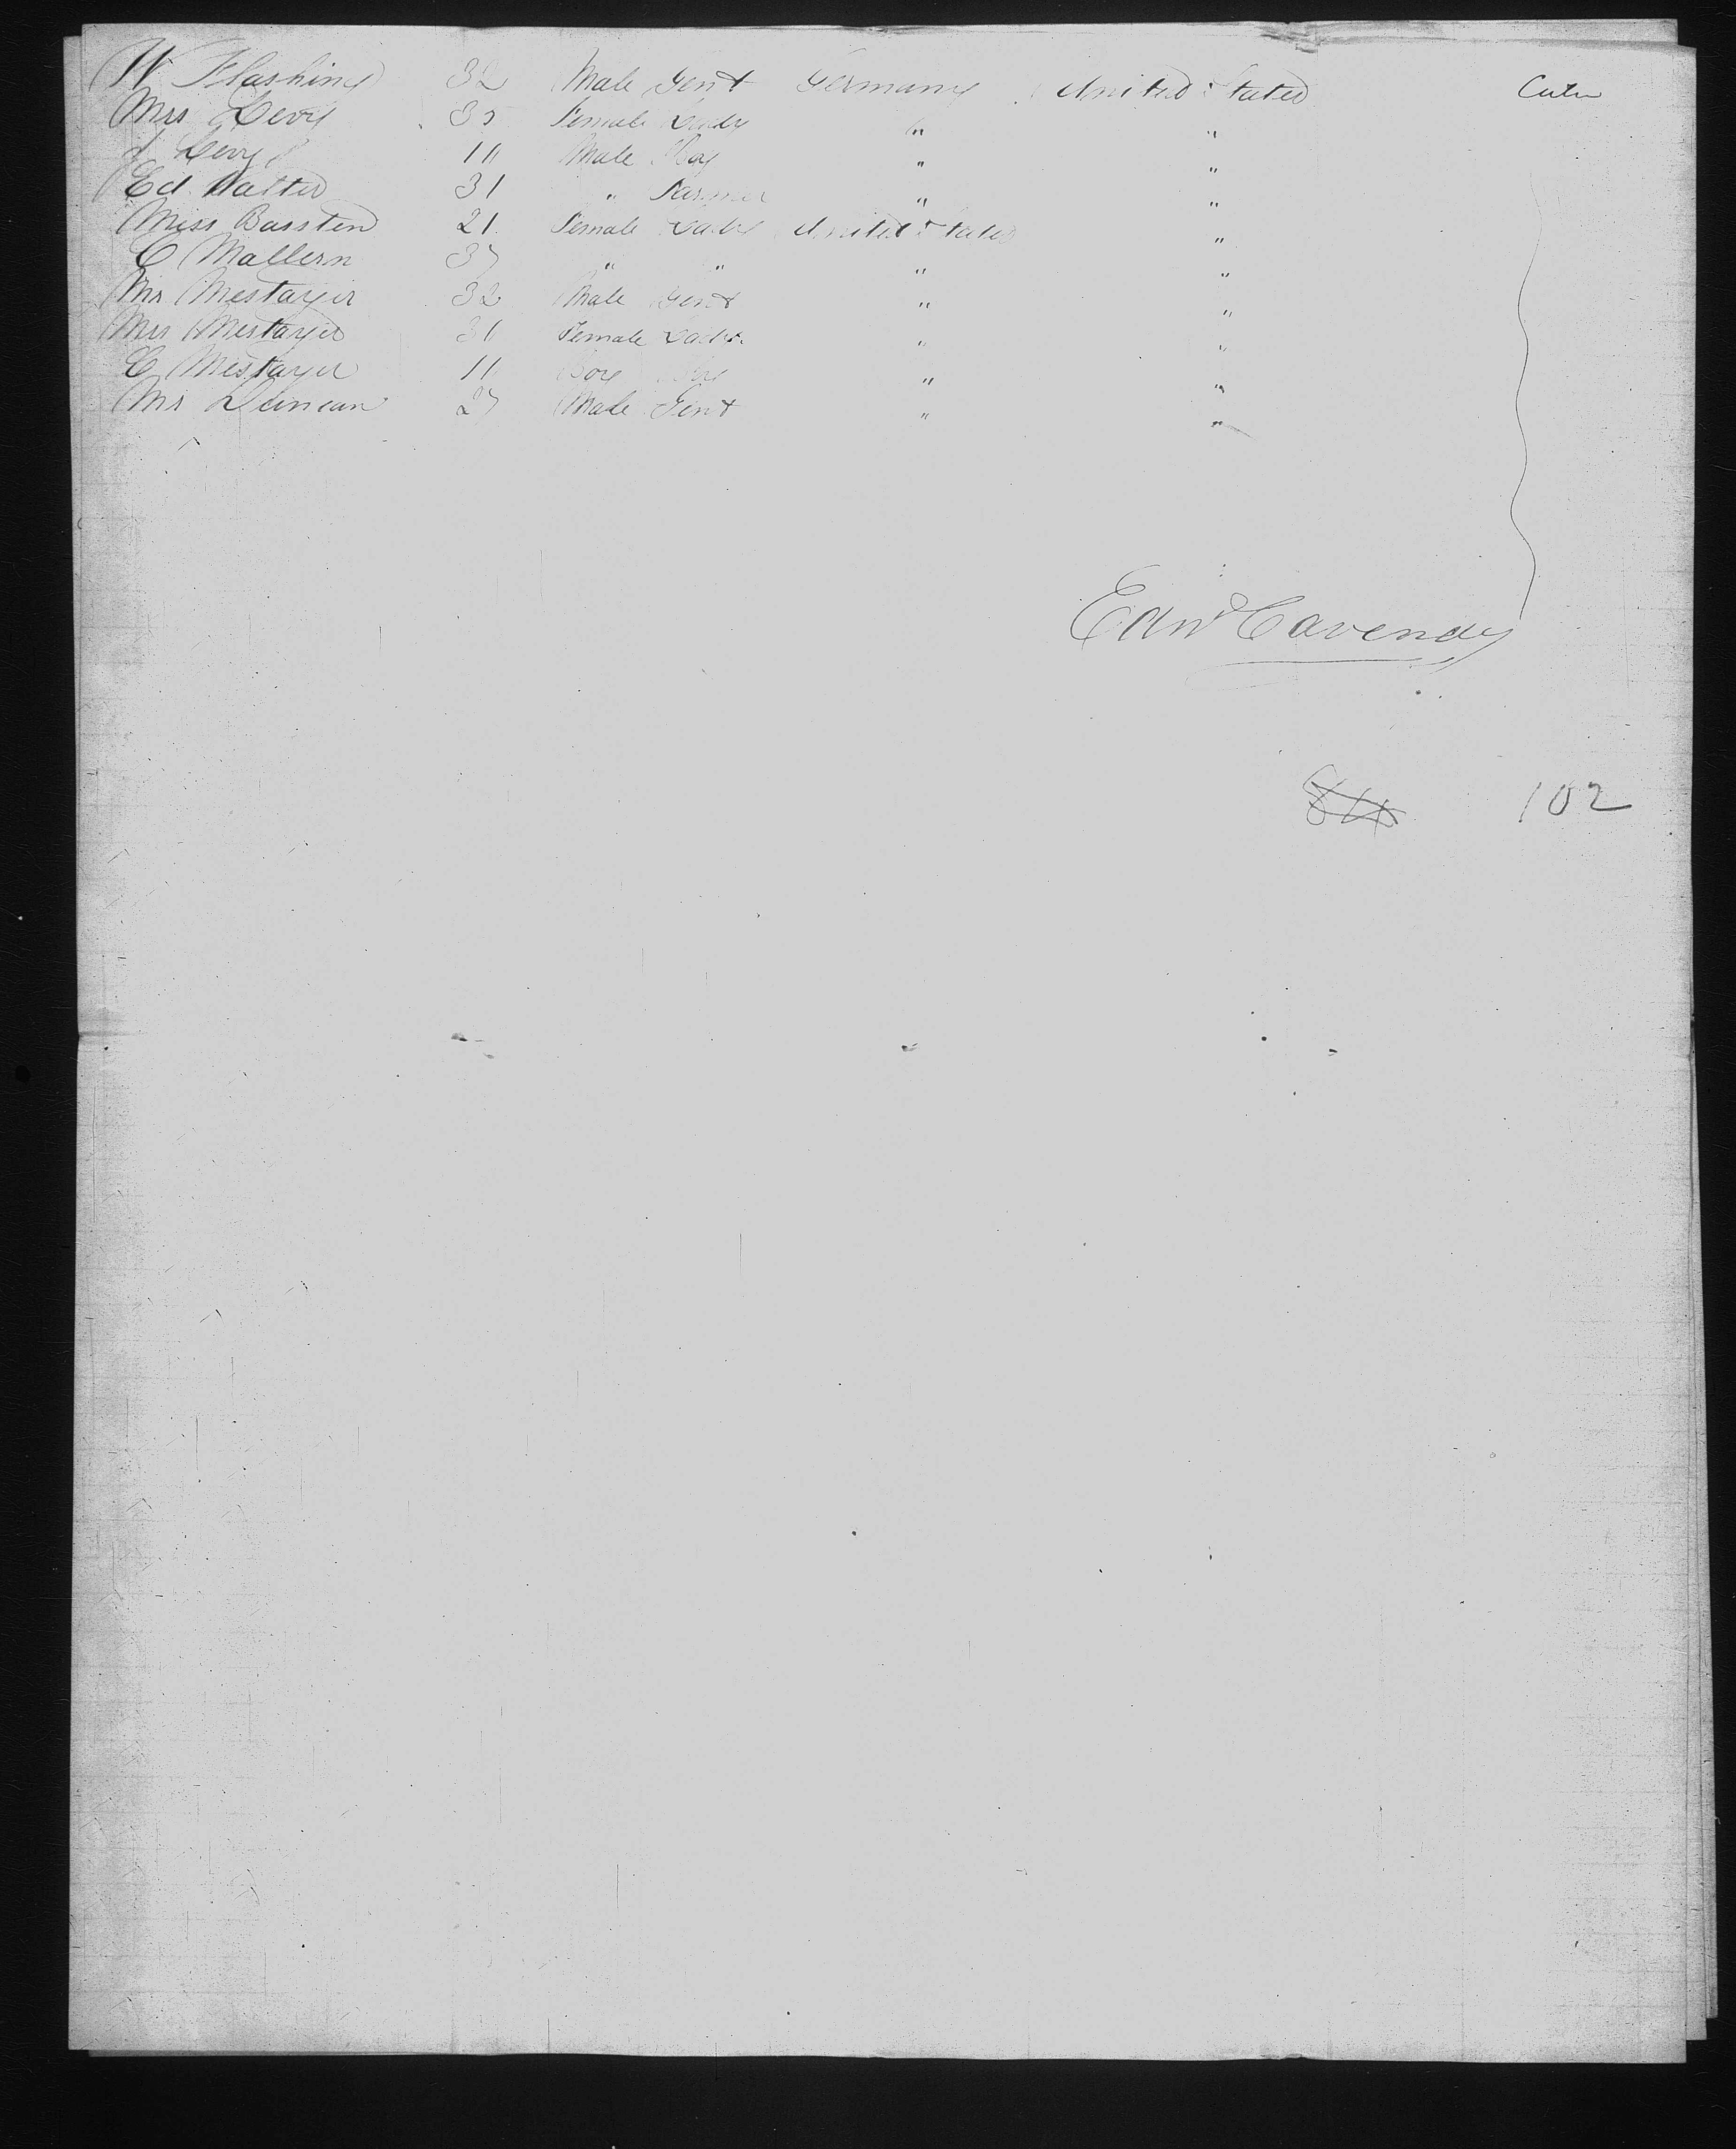 W Flashing 32 Male Gent Germany United States Cabin
Mrs Levy 35 Female Lady " "
J Levy 10 Male Boy " "
Ed 31 " Farmer " "
Miss Bassten 21 Female Lady United States "
C Mallern 37 " " " "
Mr Mestayer 32 Male Gent " "
Mrs Mestayer 31 Female Lady " "
C Mestayer 11 Boy Boy " "
Mr Duncan 27 Male Gent " "
Edwd Cavendy
84 102